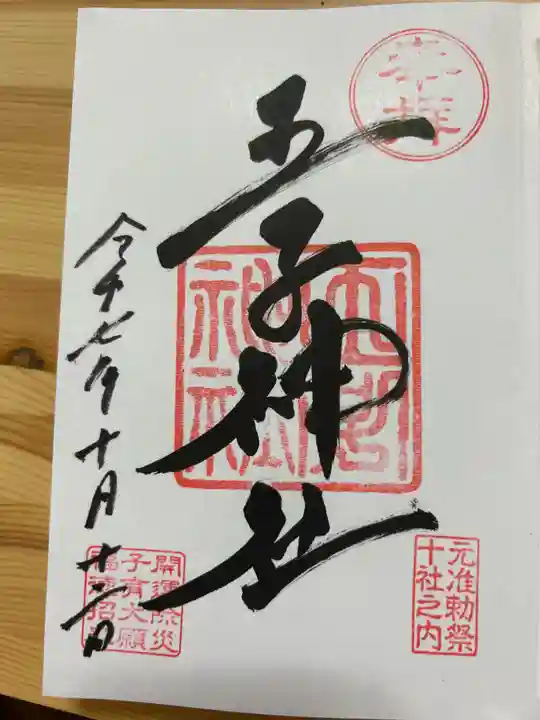 奉拝
王子神社
王子
神社
元准勅祭
十社之内
令和七年十月十二日
開運除災
子育大願
福徳招来